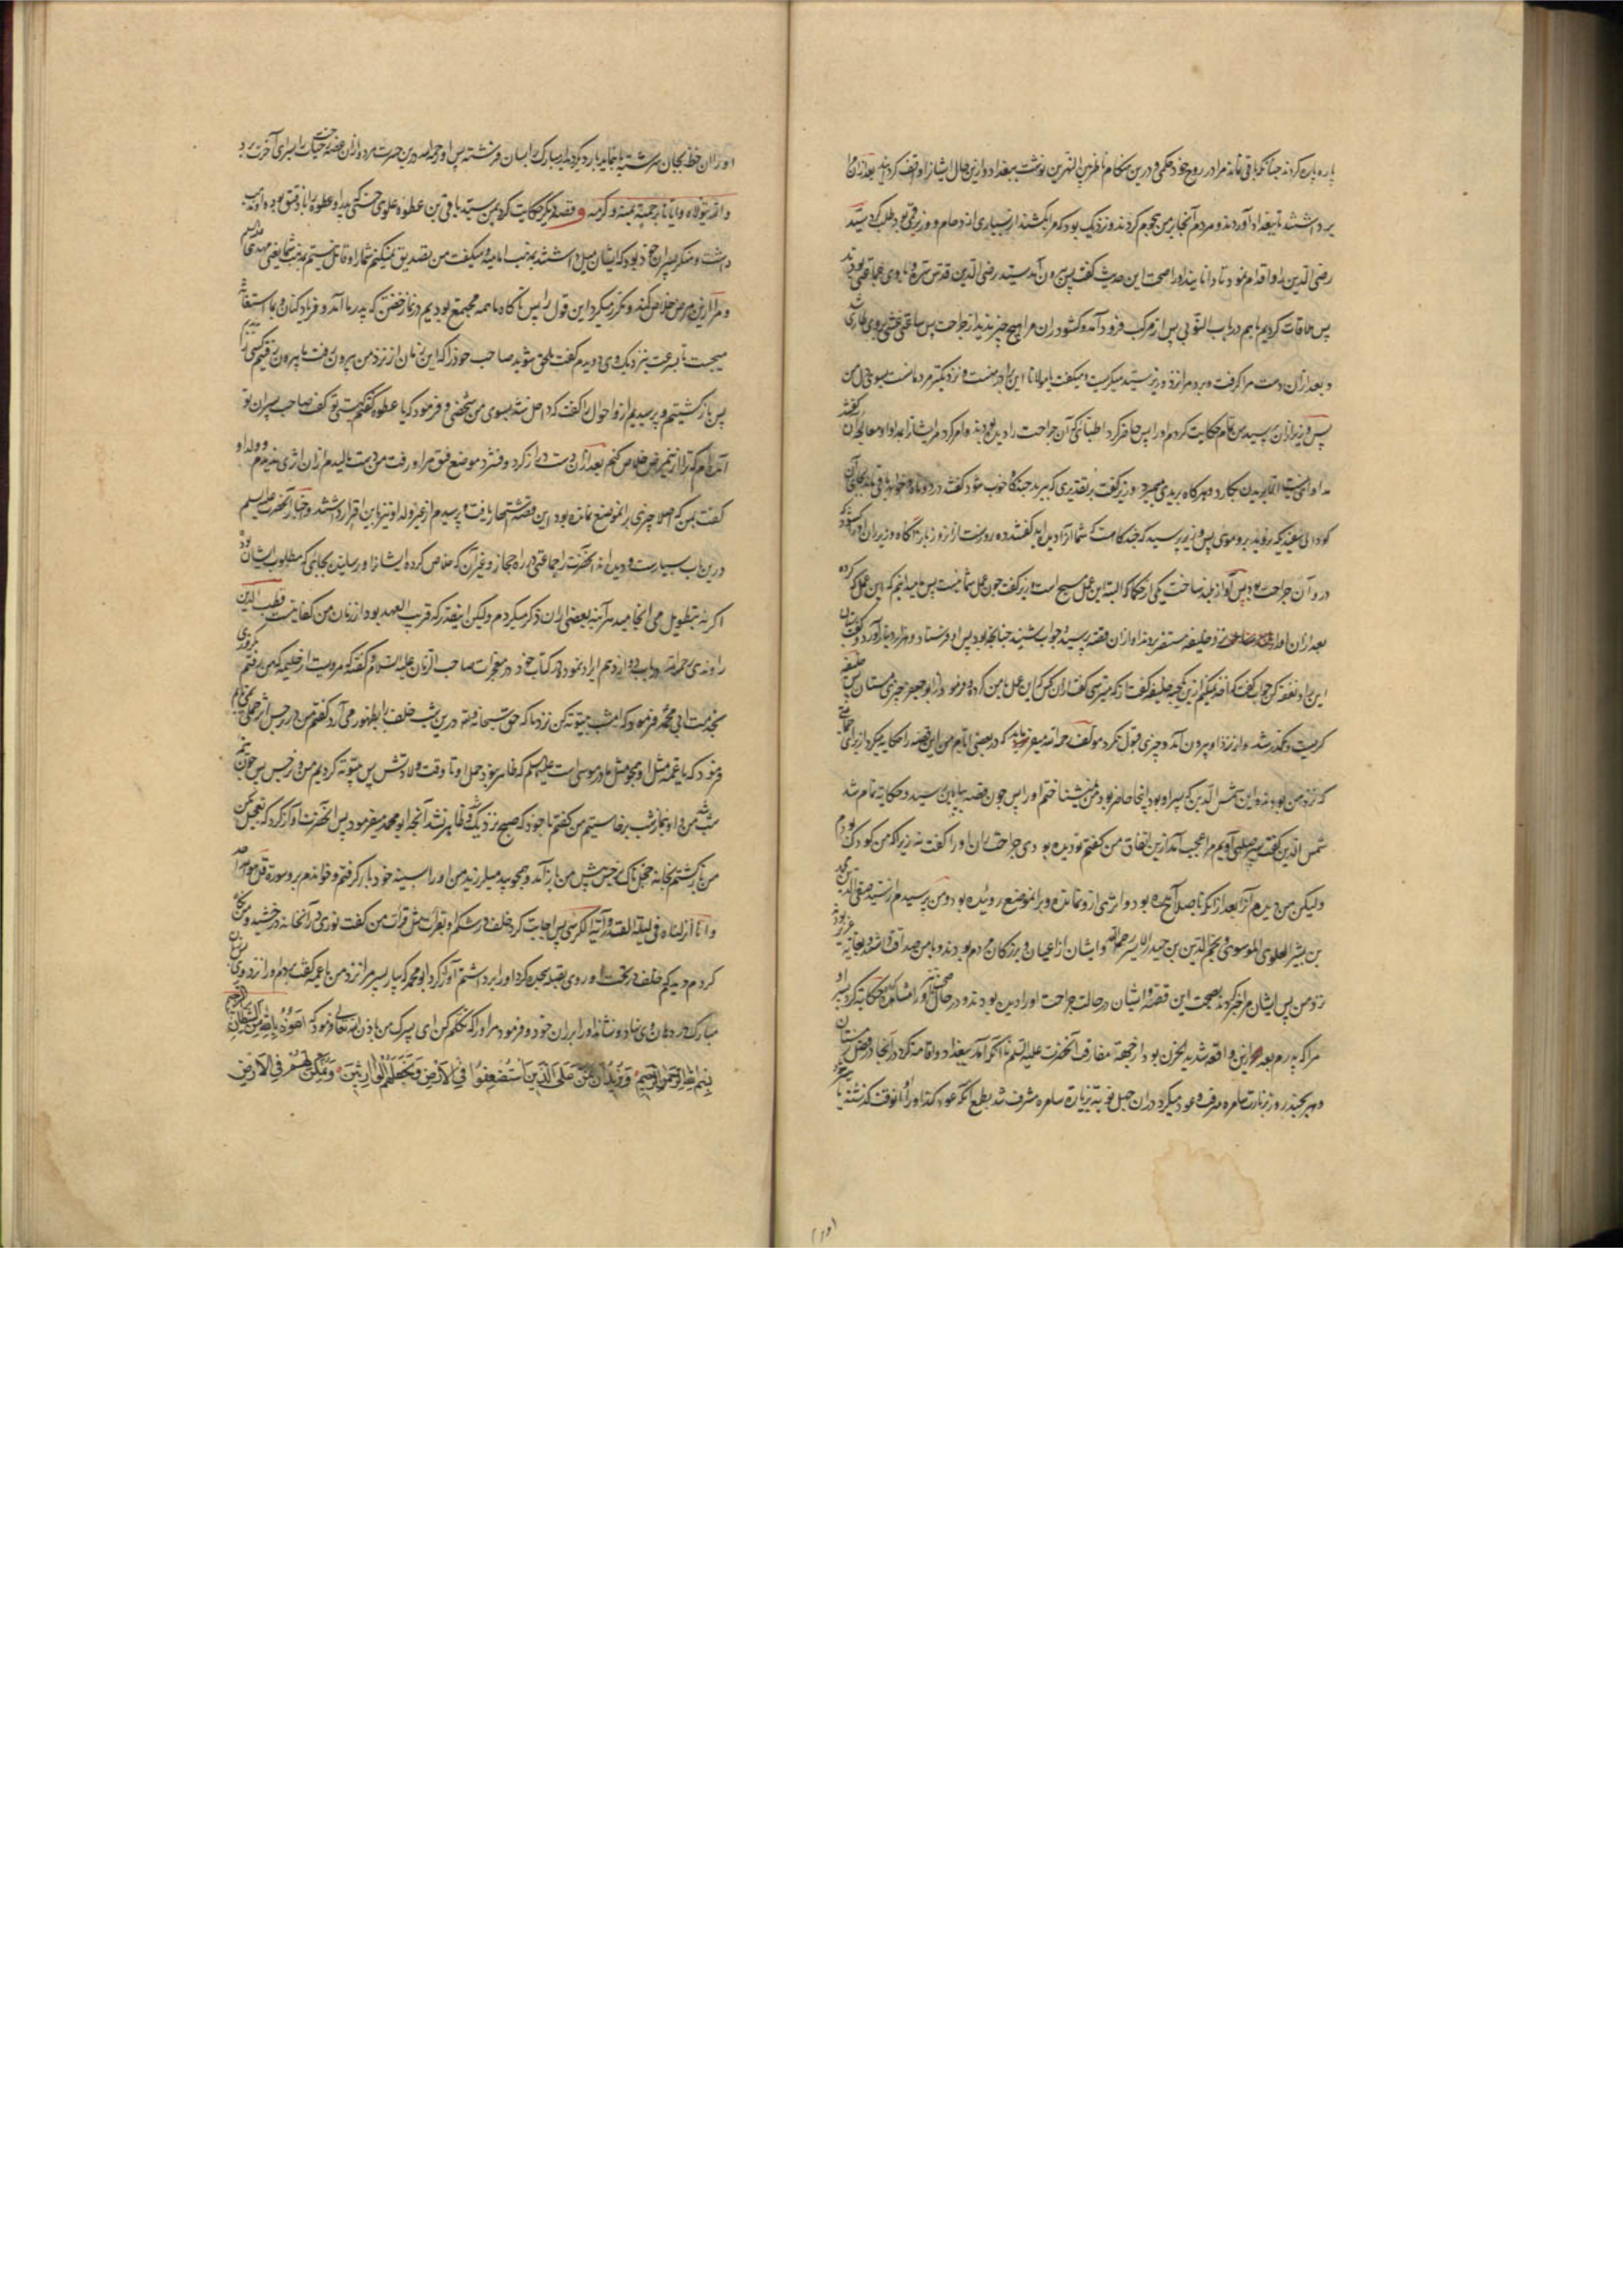 پاره پاره کردند چنانکه باقی نماند مرا در روح خود حکمی و درین هنگام ناظر بین النهرین نوشت ببغداد و ازین حال ایشانرا واقف کردانید بعد ازان مرا
برداشتند تا ببغداد آوردند و مردم آنجا بر من هجوم کردند و نزدیک بود که مرا بکشند از بسیاری ازدحام و وزیر قمی بود طلب کرد سید
رضی الدین را و اقدام نمود تا دانا بیند او را صحت این حدیث گفت پس بیرون آمد سید رضی الدین قدس سره و با وی جماعتی بودند
پس ملاقات کردیم با هم در باب النوبی پس از مرکب فرود آمد و کشود ران مرا هیچ چیز ندید از جراحت پس ساعتی غشی بر وی طاری شد
و بعد ازان دست مرا گرفت و برد مرا نزد وزیر سید میگریست و میگفت یا مولانا این برادر منست و نزدیکتر مردمانست بسوی دل من
پس وزیر ازان پرسید من تمام حکایت کردم او را پس حاضر کرد اطبائی که آن جراحت را دیده بودند و امر کرد مر ایشانرا بمداوا و معالجه آن گفتند
مداوا نیست الا بریدن بکارد و هرگاه بریدی میمیرد وزیر گفت بر تقدیری که ببرید چند گاه خوب شود گفتند در دو ماه و خواهد باقی ماند بجای آن
گودالی سفید که نروید برو موی پس وزیر پرسید که چند گاه است که شما آنرا دیده اید گفتند ده روزست ازو زیاده آنگاه وزیر ران او را کشود
درو آن جراحت بود پس آواز بلند ساخت یکی از حکما که البته این عمل مسیح است وزیر گفت چون عمل شما نیست پس ما میدانیم که این عمل که کرده
بعد ازان او را نزد خلیفه مستنصر بردند او ازان قصه پرسید و جواب شنید چنانچه بود پس او فرستاد و هزار دینار آورد و گفت بستان
این را و نفقه کن جواب گفت که اخذ نمیکنم ازین یک حبه خلیفه گفت از که میترسی گفت ازان کس که این عمل با من کرده و فرمود از ابو جعفر چیزی مستان پس خلیفه
گریست و مکدر شد و از نزد او بیرون آمد و چیزی قبول نکرد مؤلف رحمه الله میفرماید که در بعضی ایام من این قصه را حکایه میکردم از برای جماعتی
که نزد من بودند و این شمس الدین که پسر او بود آنجا حاضر بود من نمیشناختم او را پس چون قصه بپایان رسید و حکایه تمام شد
شمس الدین گفت پسر صلبی اویم مرا عجب آمد ازین اتفاق من گفتم تو دیده بودی جراحت ران او را گفت نه زیرا که من کودک بودم
ولیکن من دیدم آنرا بعد از آنکه باصلاح آمده بود و اثری ازو نمانده و بر آن موضع روئیده بود و من پرسیدم از سید صفی الدین محمد
بن بشر العلوی الموسوی و نجم الدین بن حیدر الایسر رحمهما الله و ایشان از اعیان و بزرگان مردم بودند و با من صداقت داشتند و بغایة عزیز بودند
نزد من پس ایشان مرا خبر کردند بصحت این قصه و ایشان در حالت جراحت او را دیده بودند و در حال صحت نیز و حکایة کرد پسر او
مرا که پدرم بعد ازین واقعه شدید الحزن بود از جهة مفارقة آنحضرت علیه السلم تا آنکه آمد ببغداد و اقامه کرد در آنجا در فصل زمستان
و هر چند روز بزیارت سامره میرفت و عود میکرد دران چهل نوبت بزیارة سامره مشرف شد بطمع آنکه عود کند او را آن وقت که گذشته یا
او را ان حظ بجان سرشته یا بنماید بار دیگر دیدار مبارک بسان فرشته پس او رحمه الله درین حسرت مرد و ازان غصه رخت حیات را بسرای آخرت برد
و الله یتولاه و ایانا برحمته بمنه و کرمه و قصه دیگر حکایت کرد بمن سید باقی بن عطوه علوی حسنی که پدر او عطوه را باد فتق بود و او مذهب
داشت و منکر پسران خود بود که ایشان میل داشتند بمذهب امامیه و میگفت من تصدیق نمیکنم شما را و قائل نیستم بمذهب شما یعنی مهدی علیه السلم
و مرا ازین مرض خلاص کند و مکرر میکرد این قول را پس ناگاه ما همه مجتمع بودیم در نماز خفتن که پدر ما آمد و فریاد کنان و بما استغاثه
میجست تا بسرعت بنزدیک وی دویدیم گفت ملحق شوید صاحب خود را که این زمان از نزد من بیرون رفت ما بیرون رفتیم کسی را ندیدیم
پس بازگشتیم و پرسیدیم ازو احوال را گفت که داخل شد بسوی من شخصی و فرمود که یا عطوه گفتم کیستی تو گفت صاحب پسران تو
آمده ام که ترا ازین مرض خلاص کنم بعد ازان دست دراز کرد و فشرد موضع فتق مرا و رفت من دست مالیدم ازان اثری ندیدم و ولد او
گفت بمن که اصلا چیزی بر آن موضع نمانده بود این قصه اشتهار یافت و پرسیدم از غیر ولد او نیز باین اقرار داشتند و اخبار آنحضرت علیه السلم
درین باب بسیارست و دیده اند آنحضرت را جماعتی در راه حجاز و غیر آن که خلاص کرده ایشانرا و رسانیده بجائی که مطلوب ایشان بود
اگر نه بتطویل می انجامید هر آینه بعضی ازان ذکر میکردم ولیکن اینقدر که قریب العهد بود از زمان من کفایت قطب الدین
راوندی رحمه الله در باب دوازدهم ایراد نموده در کتاب خود در معجزات صاحب الزمان علیه السلام و گفته که مرویست از حکیمه که من رفتم روزی
بخدمت ابی محمد فرمود که امشب بیتوته کن نزد ما که حق سبحانه و تعالی درین شب خلف را بظهور می آرد گفتم من در نرجس اثر حملی نمی بینم
فرمود که یا عمه مثل او همچو مثل مادر موسی است علیهما السلم که ظاهر نبود حمل او تا وقت ولادتش پس بیتوته کردیم من و نرجس پس چون نیم
شب شد من و او بنماز شب برخاستیم من گفتم با خود که صبح نزدیک شد و ظاهر نشد آنچه ابو محمد میفرمود پس آنحضرت آواز کرد که تعجیل مکن
من بازگشتم بخانه خجل ناگاه نرجس پیش من باز آمد و همچو بید میلرزید من او را بسینه خود باز گرفتم و خواندم برو سوره قل هو الله احد
و انا انزلناه فی لیلة القدر و آیة الکرسی پس اجابت کرد خلف در شکم او بقرائت مثل قرائت من گفت نوری در آن خانه درخشید و من نگاه
کردم دیدم که خلف در تحت او روی بقبله سجده کرد او را برداشتم آواز کرد ابو محمد که بیار پسر مرا نزد من یا عمه گفت بردم او را نزد وی زبان
مبارک در دهان وی نهاد و نشاند او را بر ران خود و فرمود مر او را که تکلم کن ای پسرک من باذن الله تعالی فرمود که اعوذ بالله من الشیطان الرجیم
بسم الله الرحمن الرحیم و نرید ان نمن علی الذین استضعفوا فی الارض و نجعلهم الوارثین و نمکن لهم فی الارض